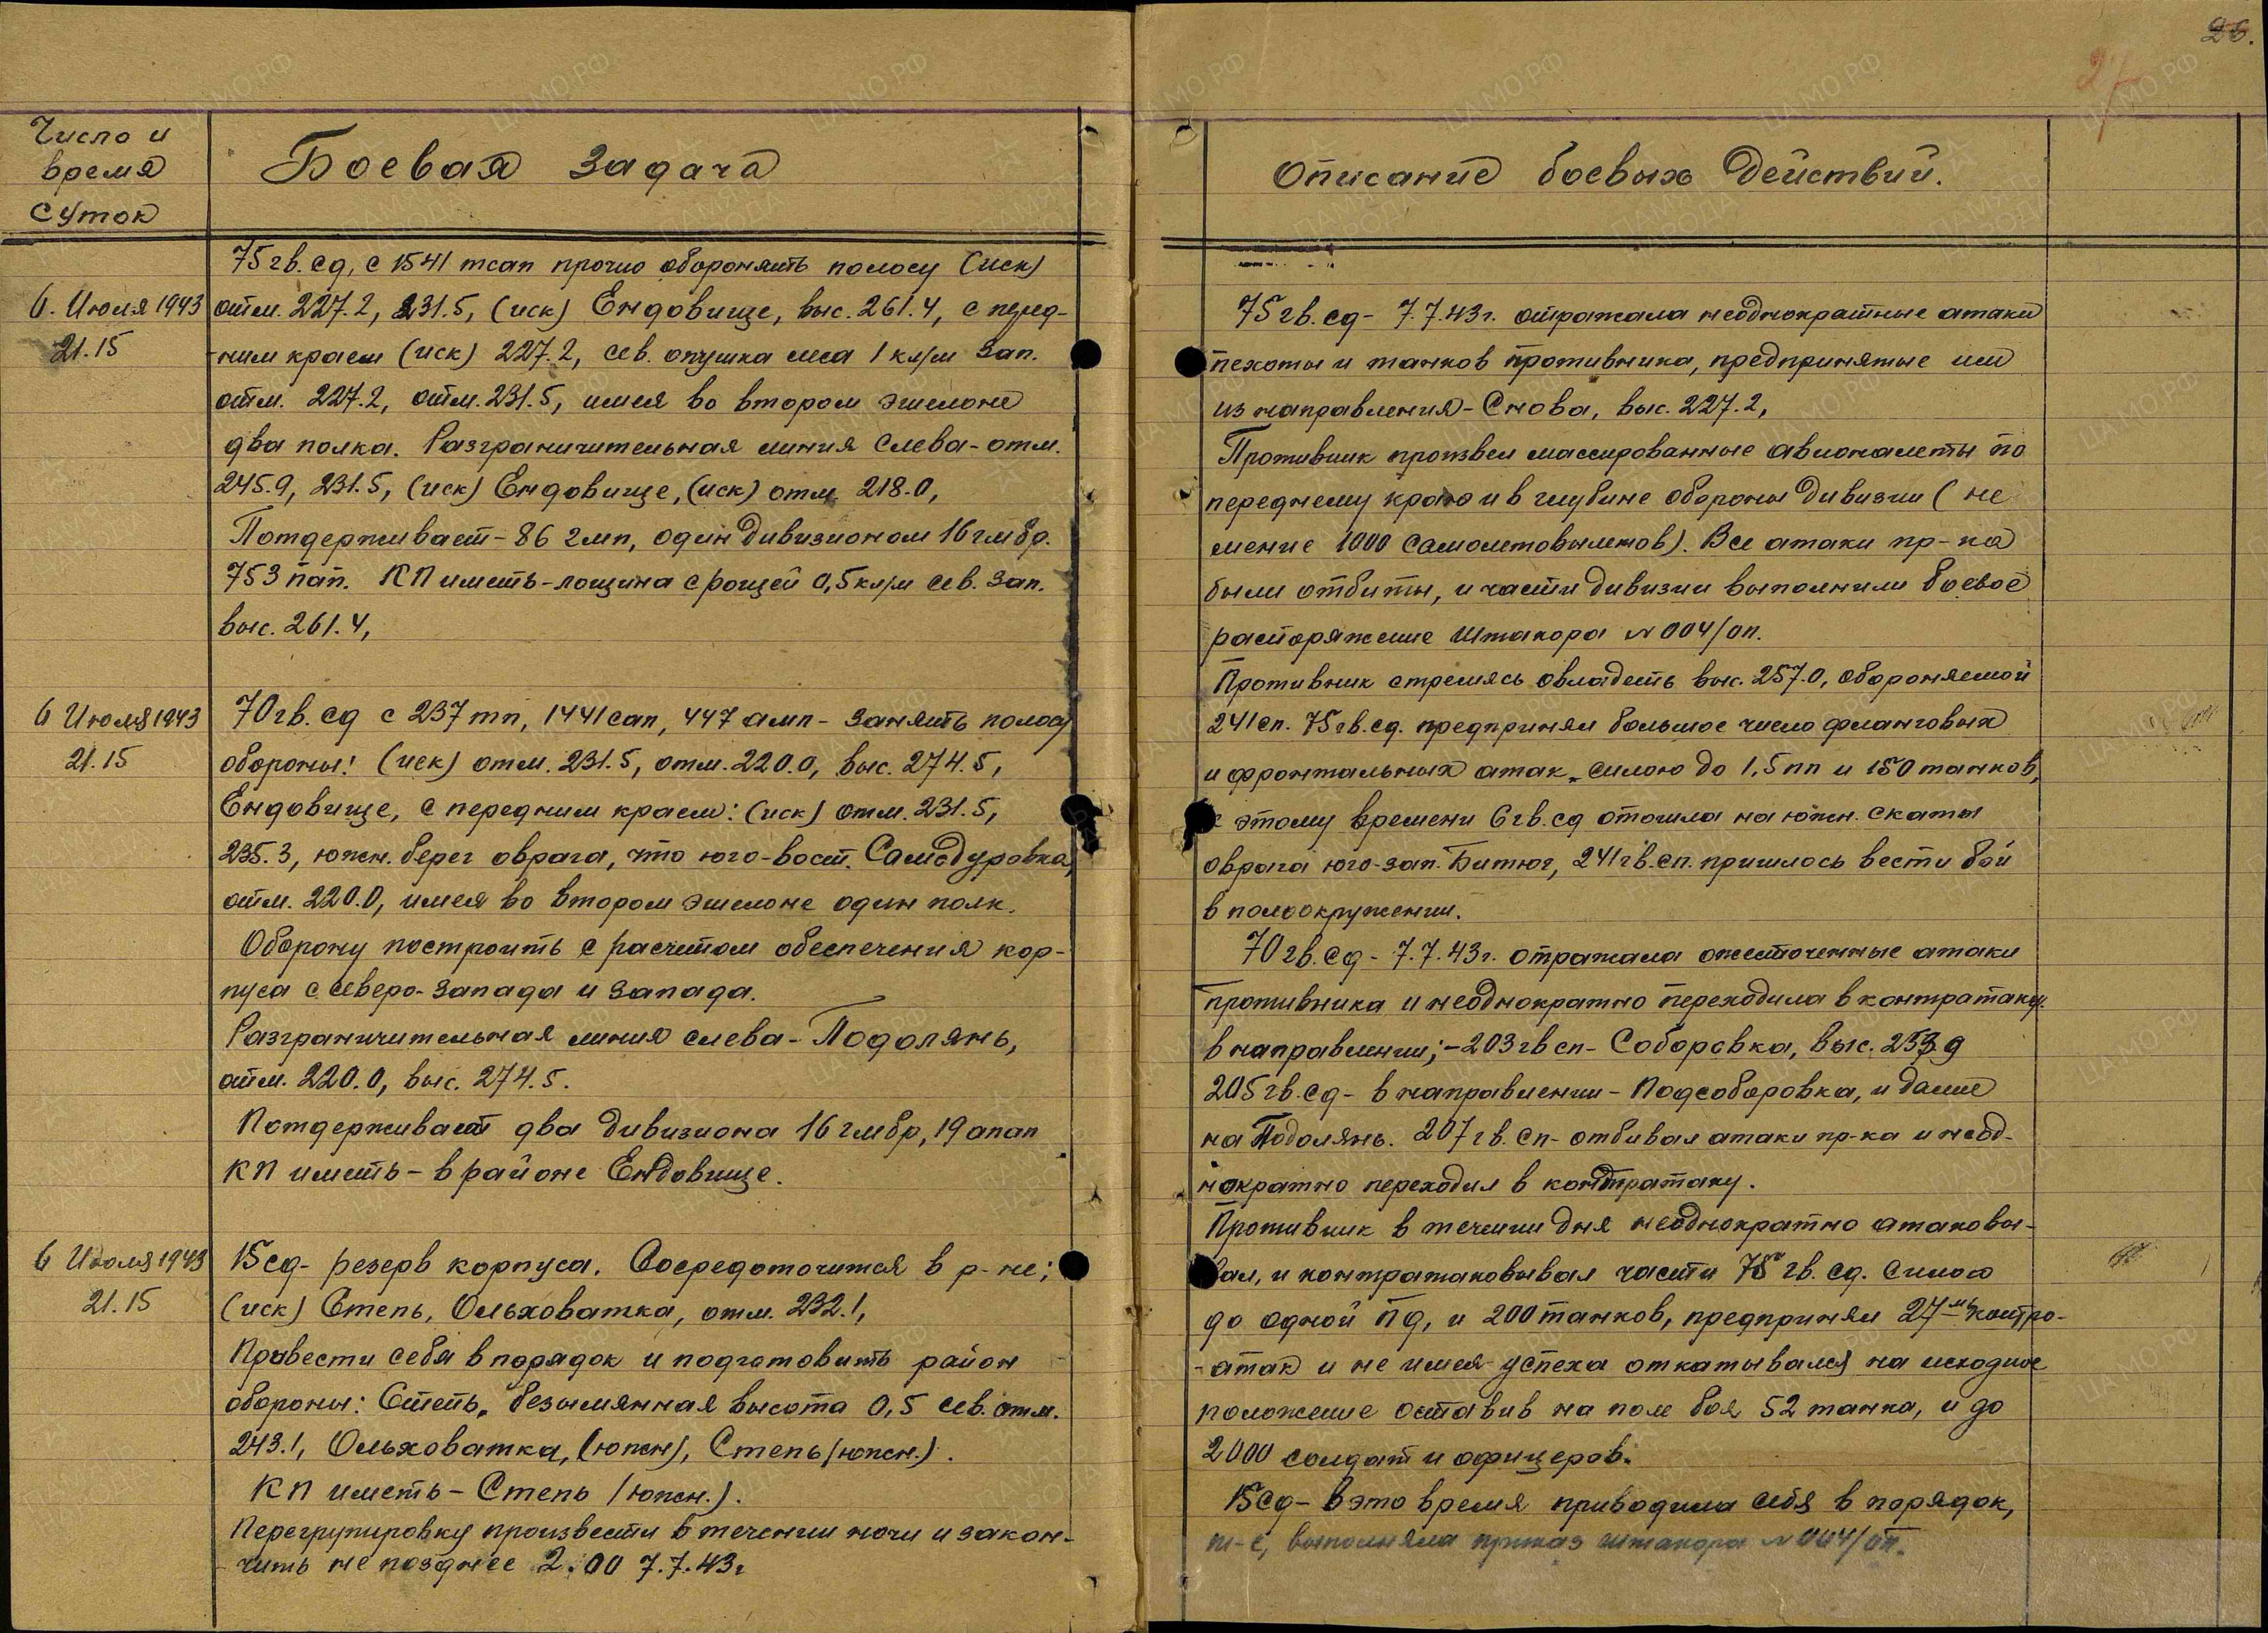 26.
27
Число и
время
суток
Боевая задача
75 гв. сд, с 1541 тсап прочно оборонять полосу (иск)
6. Июля 1943
21.15
отм. 227.2, 231.5, (иск) Ендовище, выс. 261.4, с перед-
ним краем (иск) 227.2, сев. опушка леса 1 кл/м Зап.
отм. 227.2, отм. 231.5, имея во втором эшелоне
два полка. Разграничительная линия слева - отм.
245.9, 231.5, (иск) Ендовище, (иск) отм 218.0,
Потдерживает - 86 гмп, один дивизионом 16 гмбр.
753 пап. КП иметь - лощина с рощей 0,5 кл/м сев. Зап.
выс. 261.4,
6 Июля 1943
21.15
70 гв. сд с 237 тп, 1441 сап, 447 амп - занять полосу
обороны: (иск) отм. 231.5, отм. 220.0, выс. 274.5,
Ендовище, с передним краем: (иск) отм. 231.5,
235.3, южн. берег оврага, что юго-вост. Самодуровка,
отм. 220.0, имея во втором эшелоне один полк.
Оборону построить с расчетом обеспечения кор-
пуса с северо-запада и запада.
Разграничительная линия слева - Подолянь,
отм. 220.0, выс. 274.5.
Потдерживает два дивизиона 16 гмбр, 19 апап
КП иметь - в районе Ендовище.
6 Июля 1943
21.15
15 сд - резерв корпуса. Сосредоточится в р-не;
(иск) Степь, Ольховатка, отм. 232.1,
Привести себя в порядок и подготовить район
обороны: Степь, безымянная высота 0,5 сев. отм.
243.1, Ольховатка, (южн), Степь (южн.).
КП иметь - Степь (южн.).
Перегрупировку произвести в течении ночи и закон-
чить не позднее 2.00 7.7.43г
Описание боевых Действий.
75 гв. сд - 7.7.43г. отражала неоднократные атаки
пехоты и танков противника, предпринятые им
из направления - Снова, выс. 227.2,
Противник произвел массированные авионалеты по
переднему краю и в глубине обороны дивизии (не
мение 1000 самолетовылетов). Все атаки пр-ка
были отбиты, и части дивизии выполнили боевое
распоряжение Штакора № 004/оп.
Противник стремясь овладеть выс. 257.0, обороняемой
241 сп. 75 гв. сд. предпринял большое число фланговых
и фронтальных атак, силою до 1,5 пп и 150 танков,
к этому времени 6 гв. сд отошла на южн. скаты
оврага юго-зап. Битюг, 241 гв. сп. пришлось вести бой
в полоокружении.
70 гв. сд - 7.7.43г. отражала ожесточенные атаки
противника и неоднократно переходила в контратаку.
в направлении; - 203 гв сп - Соборовка, выс. 253.9
205 гв. сд - в направлении - Подсоборовка, и далее
на Подолянь. 207 гв. сп - отбивал атаки пр-ка и неод-
нократно переходил в контратаку.
Противник в течении дня неоднократно атаковы-
вал, и контратаковывал части 75 гв. сд. силою
до одной пд, и 200 танков, предпринял 27мь контр-
-атак и не имея успеха откатывался на исходное
положение оставив на поле боя 52 танка, и до
2000 солдат и офицеров.
15 сд - в это время приводила себя в порядок,
т-е, выполняла приказ штакора № 004/оп.